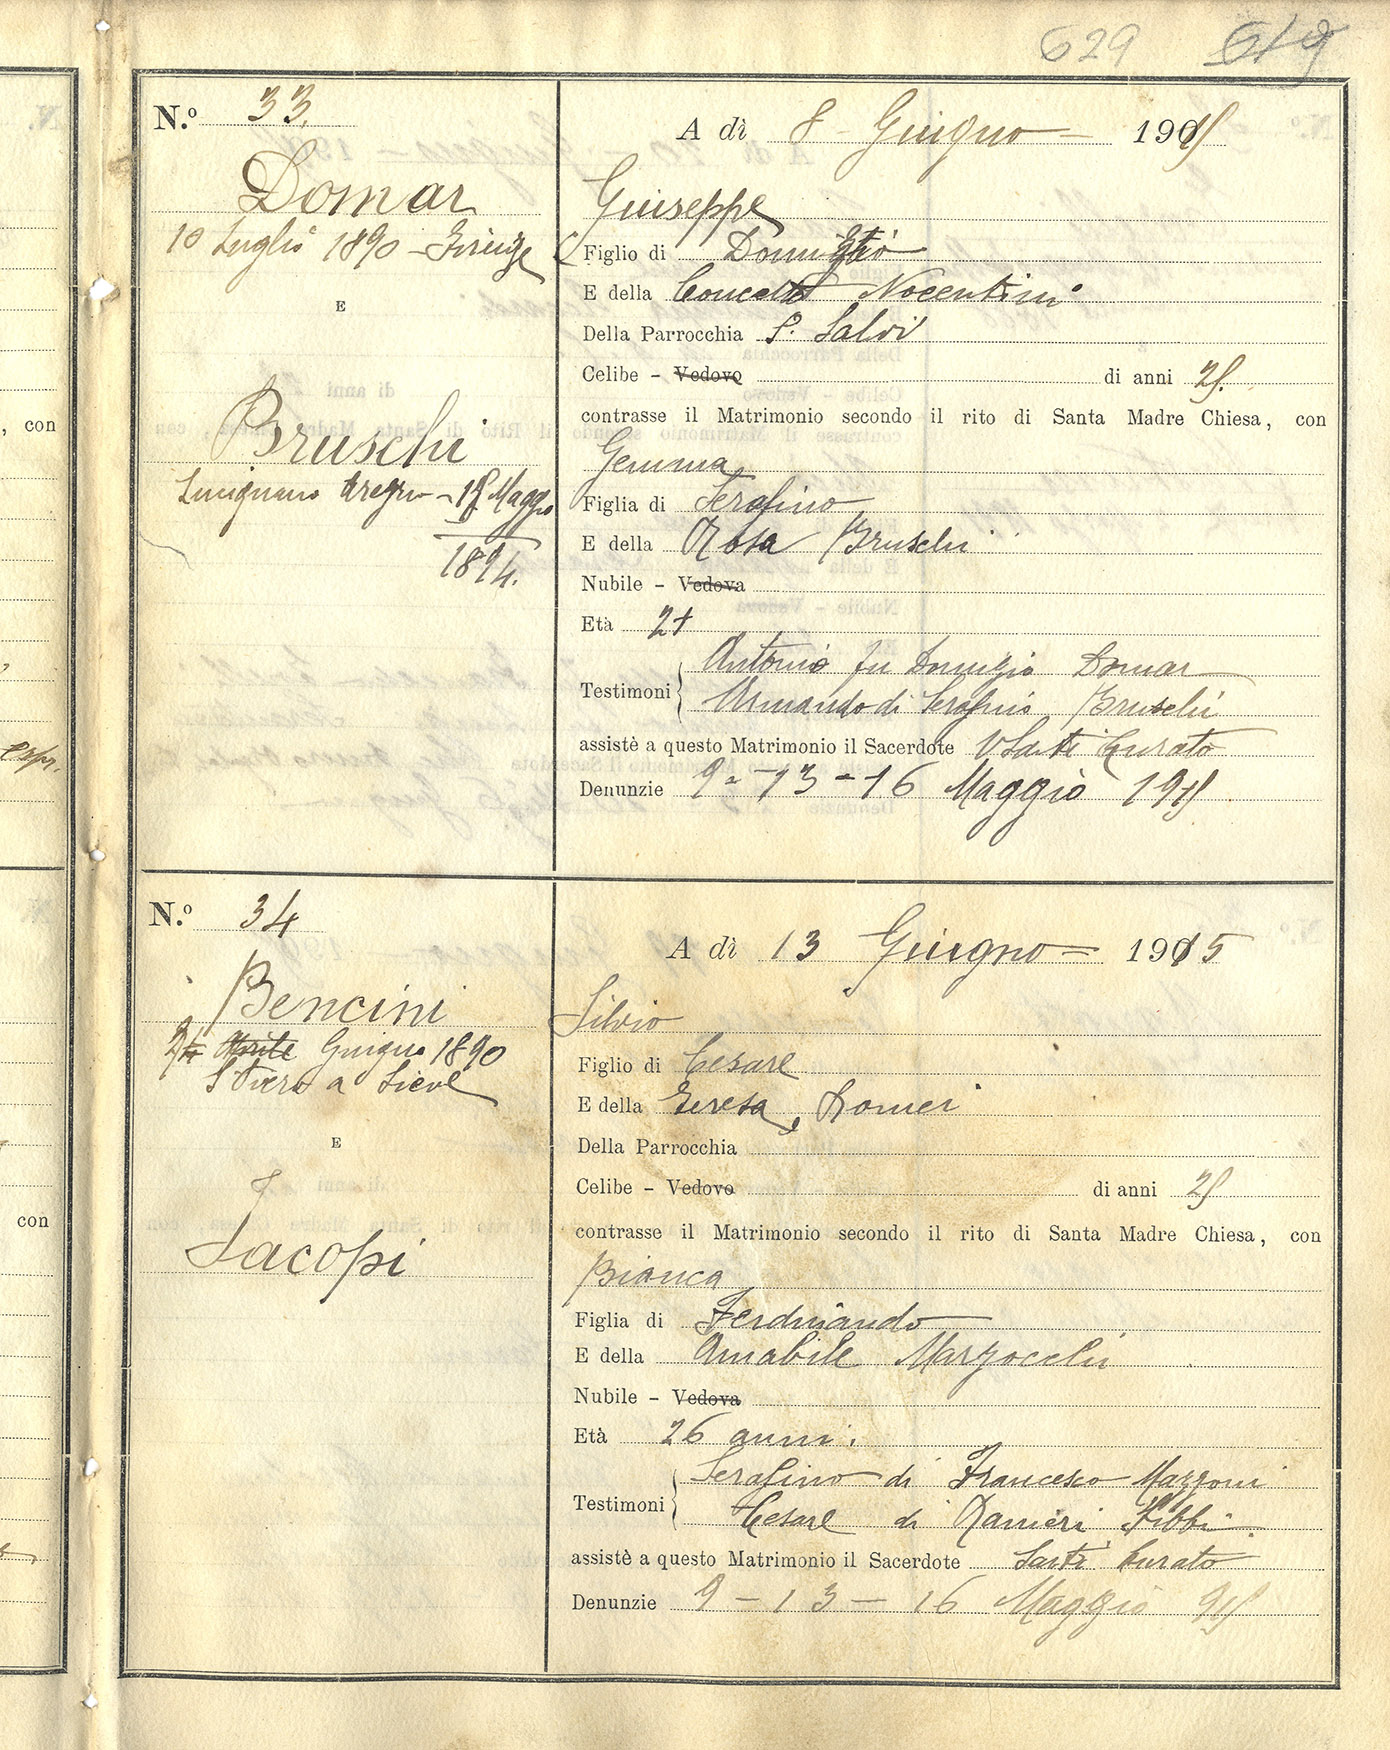 629 619
N.º 33.
A dì 8 - Giugno - 1915
Domar
10 Luglio 1890 - Firenze
E
Bruschi
Lucignano Arezzo - 18 Maggio
1894.
Giuseppe
Figlio di Domizio
E della Concetta Nocentini
Della Parrocchia S. Salvi
Celibe - Vedovo di anni 25.
contrasse il Matrimonio secondo il rito di Santa Madre Chiesa, con
Gemma
Figlia di Serafino
E della Rosa Bruschi
Nubile - Vedova
Età 21
Testimoni Antonio fu Domizio Domar
Armando di Serafino Bruschi
assistè a questo Matrimonio il Sacerdote Sarti Curato
Denunzie 9 - 13 - 16 Maggio 1915
N.º 34
A dì 13 Giugno - 1915
Bencini
24 Aprile Giugno 1890
a Sieve
E
Jacopi
Silvio
Figlio di Cesare
E della Teresa Romei
Della Parrocchia
Celibe - Vedovo di anni 25
contrasse il Matrimonio secondo il rito di Santa Madre Chiesa, con
Bianca
Figlia di Ferdinando
E della Amabile Marzocchi
Nubile - Vedova
Età 26 anni.
Testimoni Serafino di Francesco Mazzoni
Cesare di Ranieri Fibbi
assistè a questo Matrimonio il Sacerdote Sarti Curato
Denunzie 9 - 13 - 16 Maggio 915
, con
espr.
con